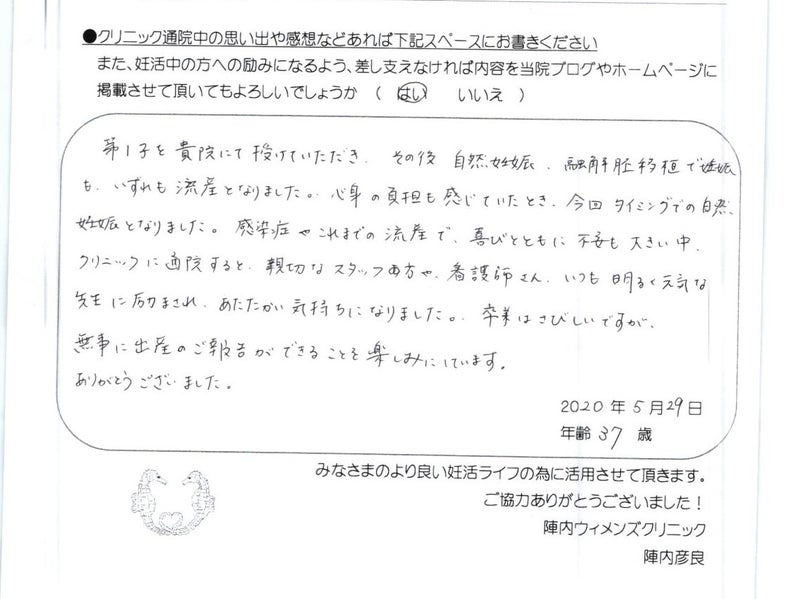 ●クリニック通院中の思い出や感想などあれば下記スペースにお書きください
また、妊活中の方への励みになるよう、差し支えなければ内容を当院ブログやホームページに
掲載させて頂いてもよろしいでしょうか ( はい いいえ )
第1子を貴院にて授けていただき、その後 自然妊娠、融解胚移植で妊娠
も、いずれも流産となりました。心身の負担も感じていたとき、今回タイミングでの自然
妊娠となりました。感染症やこれまでの流産で、喜びとともに不安も大きい中、
クリニックに通院すると、親切なスタッフの方や、看護師さん、いつも明るく元気な
先生に励まされ、あたたかい気持ちになりました。卒業はさびしいですが、
無事に出産のご報告ができることを楽しみにしています。
ありがとうございました。
2020年5月29日
年齢 37 歳
みなさまのより良い妊活ライフの為に活用させて頂きます。
ご協力ありがとうございました!
陣内ウィメンズクリニック
陣内彦良